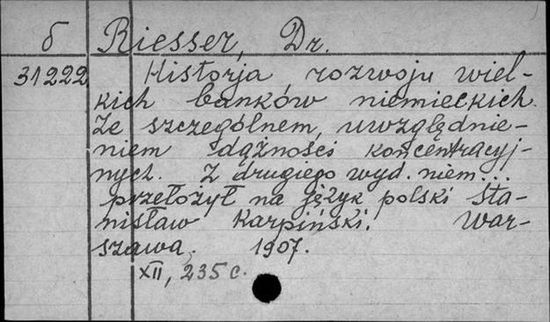 б Riesser, Dr.
31222 Historja rozwoju wiel-
kich banków niemieckich.
Ze szczególnem, uwzględnie-
niem dążności koncentracyj-
nych. Z drugiego wyd. niem..
przełożył na język polski Sta-
nisław Karpiński. War-
szawa. 1907.
XII, 235 c.